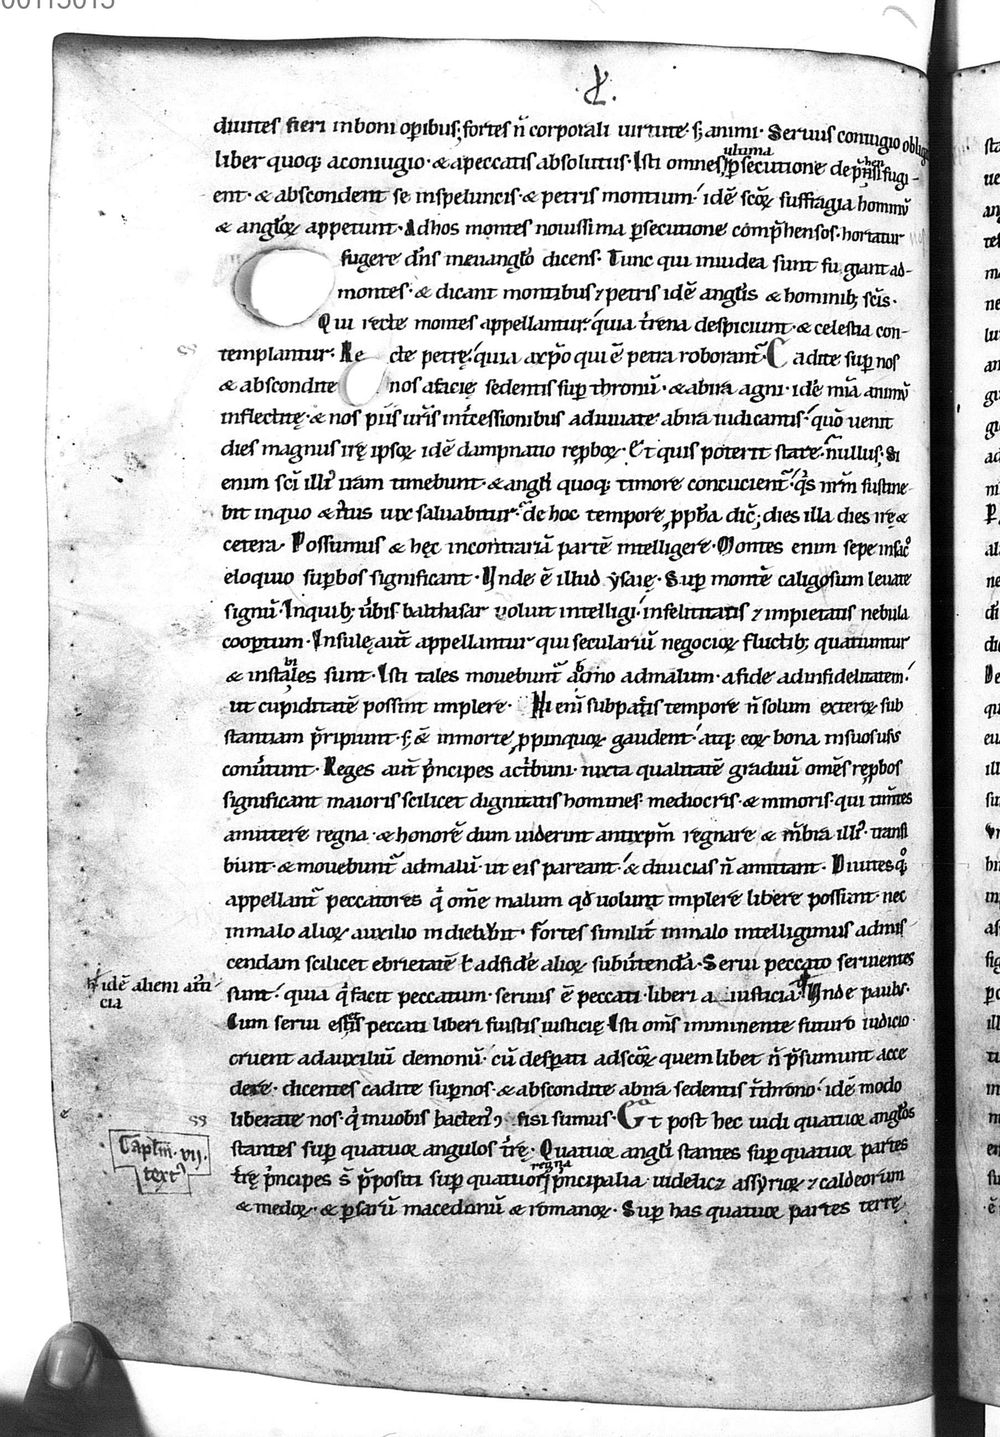 diuites fieri in boni op̄ibus; fortes n̄ corporali uirtute s; animi. Seruus coniugio oblig
liber quoq; a coniugio. & a peccatis absolutus. Isti omnes ultima p̱secutione dep̄hensi fugi-
ent. & abscondent se in speluncis. & petris montium. idē scōꝝ suffragia hominū
& angl̄oꝝ appetunt. Ad hos montes nouissima p̱secutione comp̄hensos. hortatur
fugere dn̄s in euangl̄o dicens. Tunc qui in iudea sunt fugiant ad-
montes. & dicant montibus ⁊ petris idē angl̄is & hominib; scīs.
Qui recte montes appellantur. quia t̄rena despiciunt. & celestia con-
templantur. Re cte petrę. quia a xp̄o qui ē petra roborant᷑. Cadite sup̱ nos
& abscondite nos a facię sedentis sup̱ thronū. & ab ira agni. idē
inflectitę. & nos piis ur̄is int̄cessionibus adiuuate ab ira iudicantis. quō uenit
dies magnus irę ipsoꝝ idē dampnatio rep̱boꝝ. Et quis poterit stare. n̄ nullus. Si
enim scī illi᷒ iram timebunt. & angl̄i quoq; timore concucient᷑.
bit in quo & iustus uix saluabitur. de hoc tempore ꝓph̄a dic̄; dies illa dies irę &
cetera. Possumus & hęc in contrariā partē intelligere. Montes enim sepe in sac͛
eloquio sup̱bos significant. Vnde ē illud ysaię. Sup̱ montē caligosum leuate
signū. In quib; urbis balthasar uolunt intelligi. infelicitatis ⁊ impietatis nebula
coop̱tum. Insulę aut̄ appellantur qui seculariū negocioꝝ fluctib; quatiuntur
& instabiles sunt. Isti tales mouebunt᷑ ad malum. a fide ad infidelitatem.
ut cupiditatē possint implere. Hi enī sub pagan̄is tempore n̄ solum exteroꝝ sub
stantiam p̄ripiunt. s; & in morte ꝓpinquoꝝ gaudent. atq; eoꝝ bona in suos usus
conu̓tunt. Reges aut̄ p̓ncipes at tribuni. iuxta qualitatē graduū om̄es rep̱bos
significant maioris scilicet dignitatis homines. mediocris. & minoris. qui tim̄tes
amittere regna. & honorē dum uiderint antixp̄m regnare & m̄bra illi᷒. transi
bunt. & mouebunt᷑ ad malū. ut eis pareant. & diuicias n̄ amittant. Diuites q͛;
appellant᷑ peccatores q̓ om̄e malum qd̓ uolunt implerē libere possunt. nec
in malo alioꝝ auxilio indiebunt. Fortes similit̄ in malo intelligimus ad mis
cendam scilicet ebrietatē ł ad fidē alioꝝ subu̓tendā. Serui peccato seruientes
sunt. quia q̓ facit peccatum. seruus ē peccati. liberi a iusticia. Vnde paulus.
Cum serui essetis peccati liberi fuistis iusticię. Isti om̄s imminente futuro iudicio
cruent ad auxiliū demonū. cū desp̱ati ad scōꝝ quem libet n̄ p̄sumunt acce
dere. dicentes cadite sup̱ nos. & abscondite ab ira sedentis in throno. idē modo
liberate nos. q̓ in uobis hactenus ꝯfisi sumus. Et post hec uidi quatuor angl̄os
stantes sup̱ quatuor angulos t̄rę. Quatuor angl̄i stantes sup̱ quatuor partes
t̄rę p̓ncipes s̄ p̄positi sup̱ quatuor regna p̓ncipalia. uidelic; assyrioꝝ ⁊ caldeorum
& medoꝝ. & p̱sarū macedonū & romanoꝝ. Sup̱ has quatuor partes terrę
idē alieni a iusti
cia
Capl̄m. vij.
text᷒